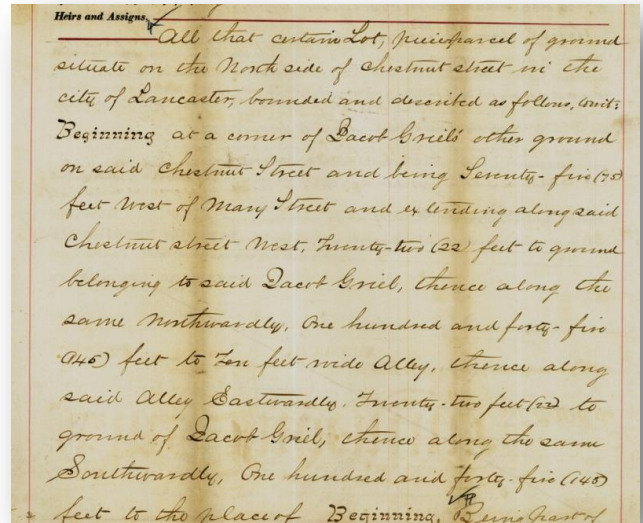 Heirs and Assigns,
All that certain Lot, piece parcel of ground
situate on the North side of Chestnut street in the
city of Lancaster, bounded and described as follows, towit:
Beginning at a corner of Jacob Griels' other ground
on said Chestnut Street and being Seventy-five (75)
feet West of Mary Street and extending along said
Chestnut street West, Twenty-two (22 feet to ground
belonging to said Jacob Griel, thence along the
same Northwardly, One hundred and forty-five
(145) feet to Ten feet wide Alley, thence along
said Alley Eastwardly, Twenty-two feet (22) to
ground of Jacob Griel, thence along the same
Southwardly, One hundred and forty-five (145)
feet to the place of Beginning, Being part of